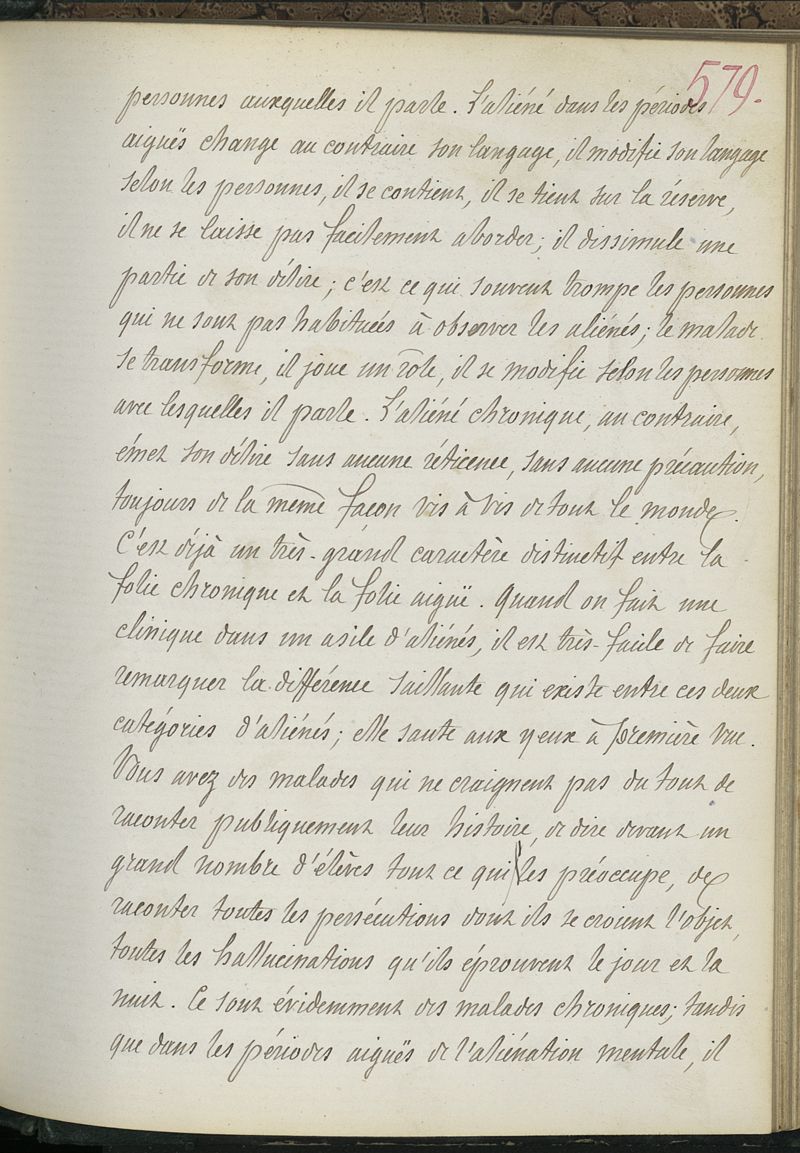 579.
personnes auxquelles il parle. L'aliéné dans les périodes
aiguës change au contraire son langage, il modifie son langage
selon les personnes, il se contient, il se tient sur la réserve,
il ne se laisse pas facilement aborder; il dissimule une
partie de son délire; c'est ce qui souvent trompe les personnes
qui ne sont pas habituées à observer les aliénés; le malade
se transforme, il joue un rôle, il se modifie selon les personnes
avec lesquelles il parle. L'aliéné chronique, au contraire,
émet son délire sans aucune réticence, sans aucune précaution,
toujours de la même façon vis à vis de tout le monde.
C'est déjà un très-grand caractère distinctif entre la
folie chronique et la folie aiguë. Quand on fait une
clinique dans un asile d'aliénés, il est très-facile de faire
remarquer la différence saillante qui existe entre ces deux
catégories d'aliénés; elle saute aux yeux à première vue.
Vous avez des malades qui ne craignent pas du tout de
raconter publiquement leur histoire, de dire devant un
grand nombre d'élèves tout ce qui les préoccupe, de
raconter toutes les persécutions dont ils se croient l'objet,
toutes les hallucinations qu'ils éprouvent le jour et la
nuit. Ce sont évidemment des malades chroniques; tandis
que dans les périodes aiguës de l'aliénation mentale, il